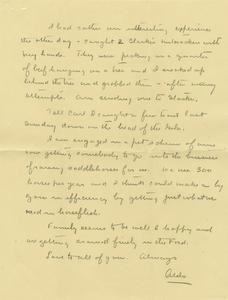 I had rather an interesting experience
the other day - caught 2 Clarke's nutcrackers with
my hands. They were picking on a quarter
of beef hanging in a tree and I sneaked up
behind the tree and grabbed them - after many
attempts. Am sending one to
Tell Carl I caught a fine trout last
Sunday down on the head of the
I am engaged in a pet scheme of mine
now getting somebody to go into the business
of raising saddlehorses for us. We use 300
horses per year and I think could make a big
gain in efficiency by getting just what we
need in horseflesh.
Family seems to be well & happy and
are getting around finely in the Ford.
Love to all of you. Always
Aldo